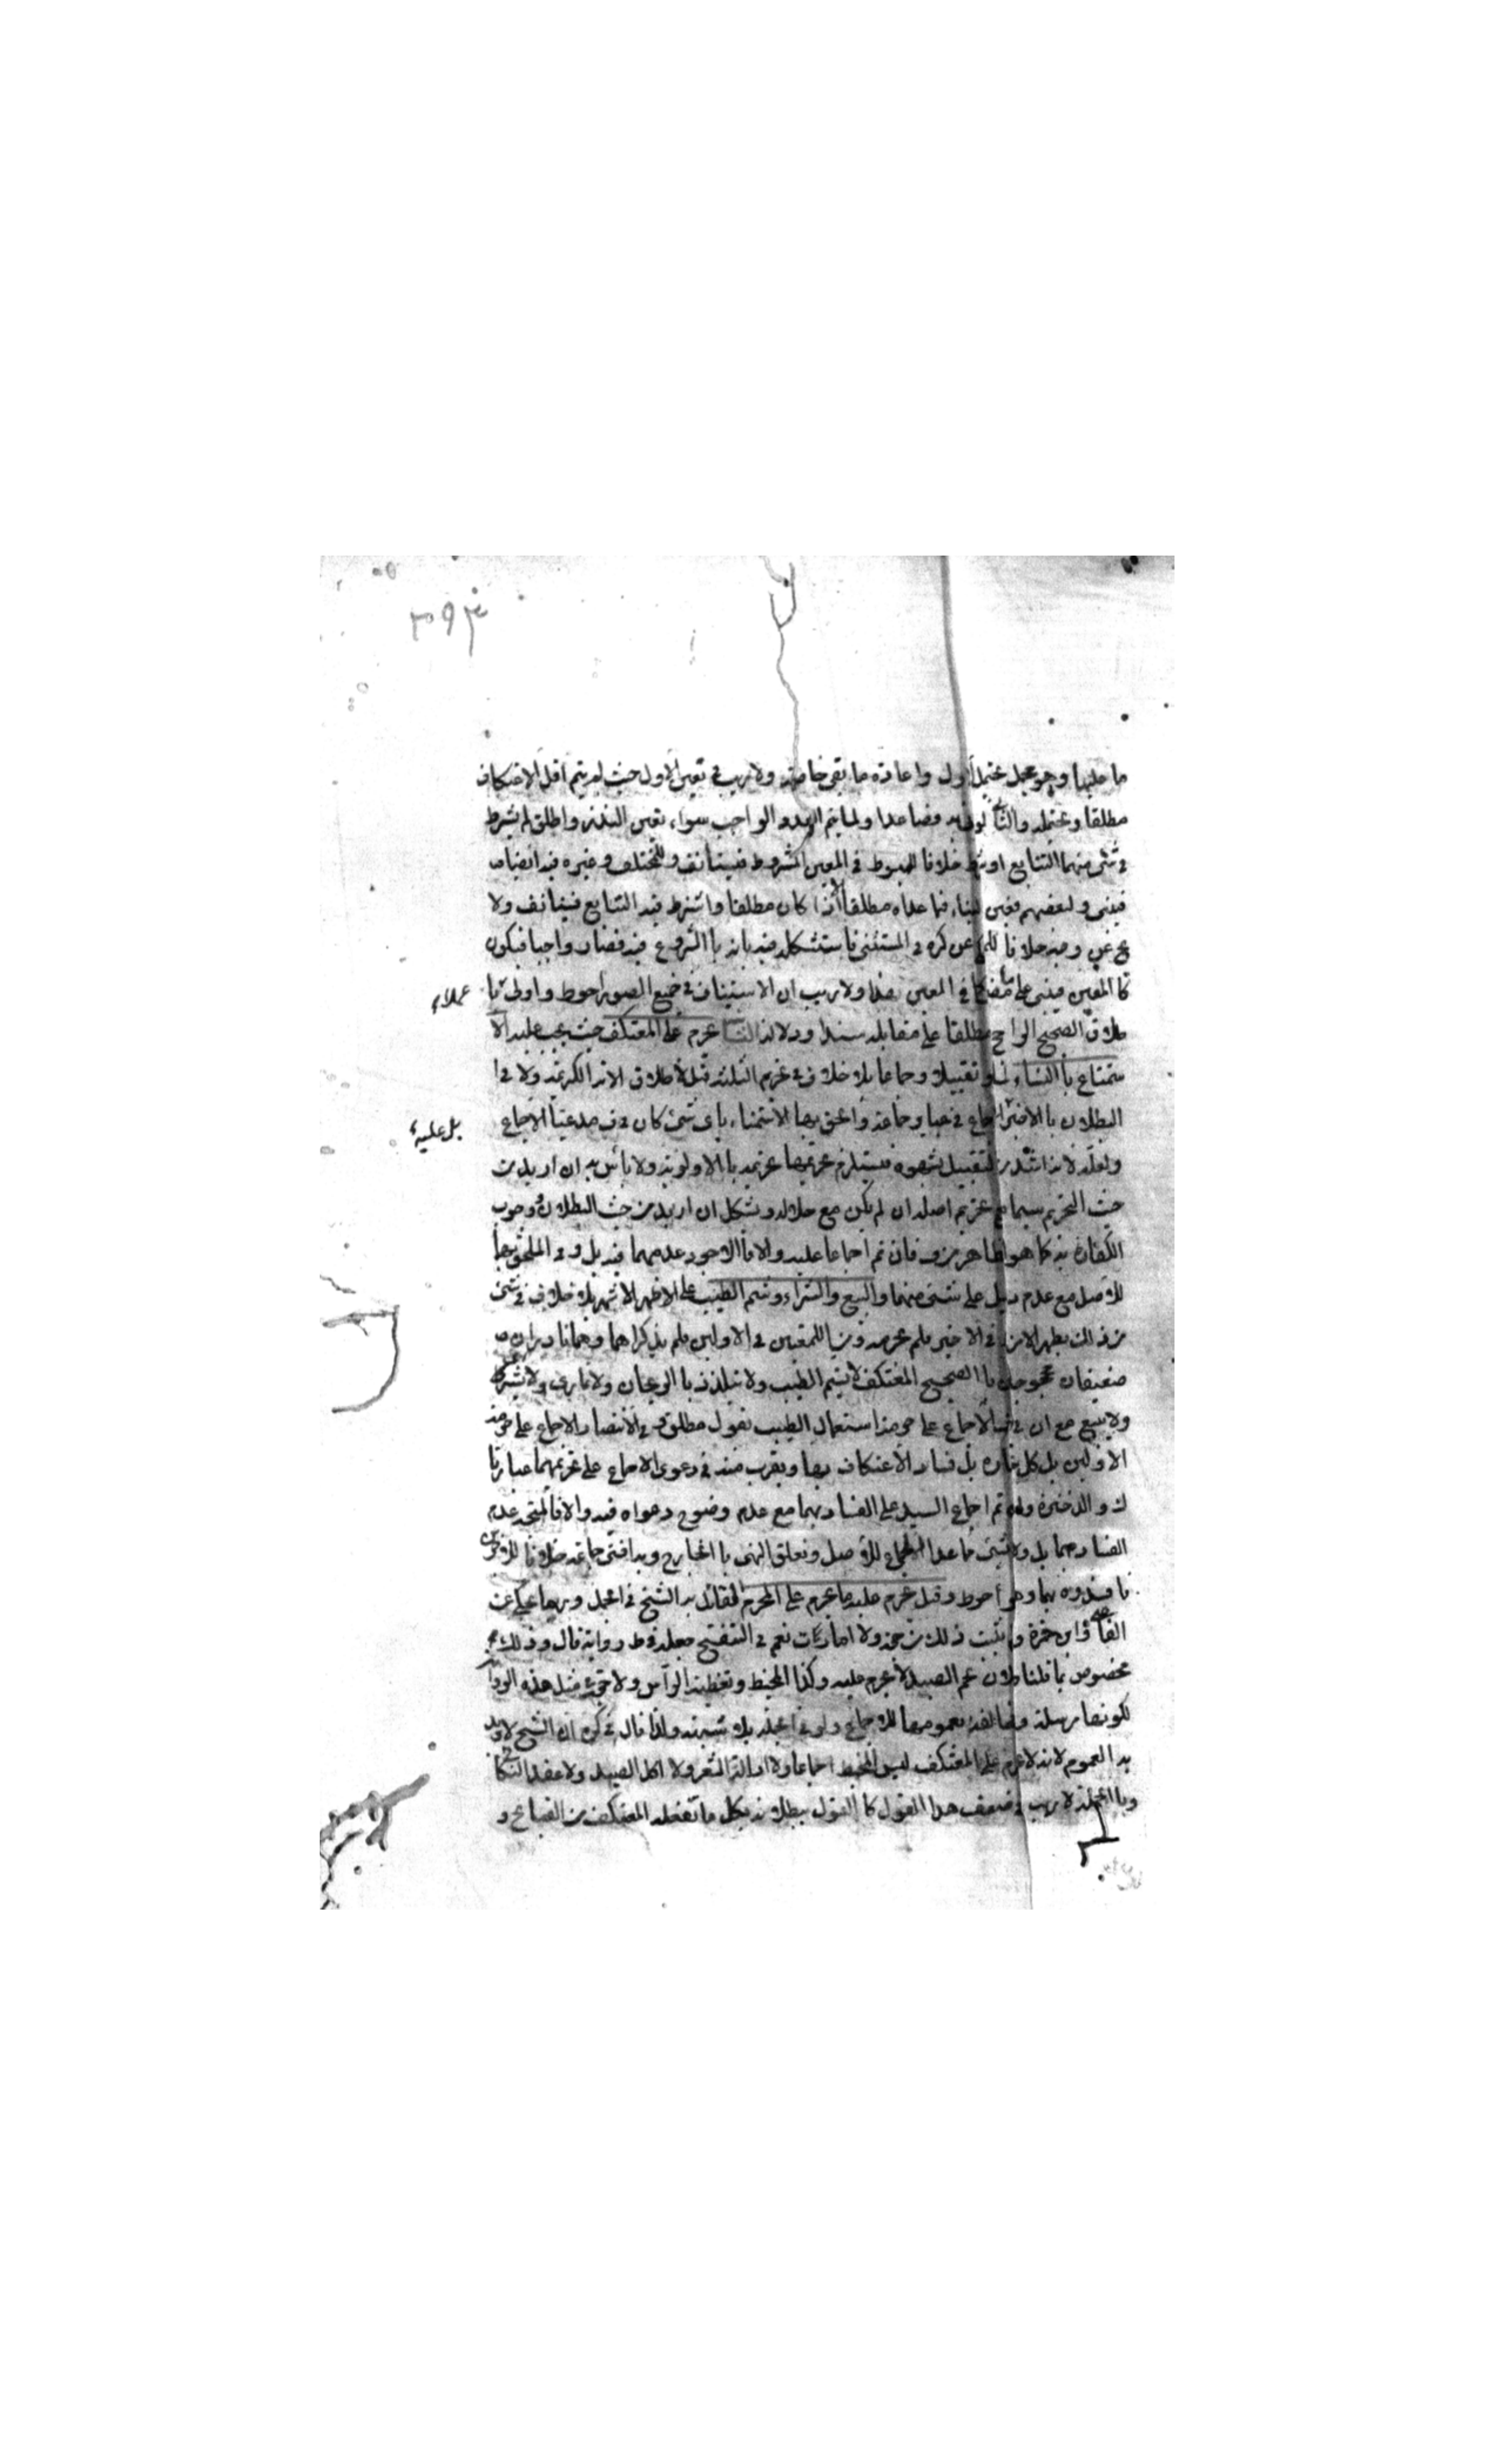 ٣٩٣
ما عليها وهو مجمل محتمل الأول واعادة ما بقى خاصة ولا ريب في تعين الاول حيث لم يتم اقل الاعتكاف
مطلقا ومحتمله والثاني فصاعدا ولما يتم العدد الواجب سواء تعين النذر واطلق لم يشترط
في شيء منهما التتابع او شرط خلافا للمبسوط في المعين المشروط فيستانف وللمختلف وغيره فيه ايضا
فيبنى ولبعضهم فعين البناء فيما عداه مطلقا الا اذا كان مطلقا واشترط فيه التتابع فيستانف ولا
يخ عن وفيه خلافا للمحكى عن كره في المستثنى فاستشكله فيه بانه بالشروع فيه فصار واجبا فيكون
كالمعين فيبنى على ما مضى في المعين ولا ريب ان الاستيناف في جميع الصور احوط واولى
عملا
طلاق الصحيح الراجح مطلقا على مقابله سندا ودلالة يحرم على المعتكف حيث يجب عليه الا
ستمتاع بالنساء لمسا وتقبيلا وجماعا بلا خلاف في تحريم الثلثة قيل لاطلاق الاية الكريمة ولا في
البطلان بالاخير الجماع في عبا وجماعة والحق بها الاستمناء باى شئ كان في ف مدعيا الاجماع
بل عليه
ولعله لانه اشد من التقبيل بشهوة فيستلزم تحريمها تحريمه بالاولوية ولا بأس به ان اريد من
حيث التحريم سيما مع تحريم اصله ان لم يكن مع حلاله ويشكل ان اريد من حيث البطلان ووجوب
الكفارة به كما هو ظاهر من ف فان تم اجماعا عليه والا فالاجود عدمهما فيه بل وفي الملحق بها
للاصل مع عدم دليل على شئ منهما والبيع والشراء وشم الطيب على الاظهر الاشهر بلا خلاف في شئ
من ذلك يظهر الا من في الاخير فلم يحرمه ومن اللمعتين في الاولين فلم يذكراهما وهما نادران
ضعيفان محجوجان بالصحيح المعتكف لا يشم الطيب ولا يتلذذ بالريحان ولا يمارى ولا يشترى
ولا يبيع مع ان في الاجماع على حرمة استعمال الطيب بقول مطلق وفي الانتصار الاجماع على حرمة
الاولين بل كل تجارة بل فساد الاعتكاف بها ويقرب منه في دعوى الاجماع على تحريمهما عبارتا
ك والذخيرة وان تم اجماع السيد على الفساد بهما مع عدم وضوح دعواه فيه والا فالمتجه عدم
الفساد بهما بل ولا بشئ ما عدا الجماع للاصل وتعلق النهى بالخارج وبه افتى جماعة خلافا للاخرين
فافسدوه بها وهو أحوط وقيل يحرم عليه ما يحرم على المحرم القائل به الشيخ في الجمل وربما يحكى عن
القاضى وابن حمزة ولم يثبت ذلك من حجة ولا امارات نعم في التنقيح جعله في ط رواية قال وذلك
مخصوص بما قلناه لان لحم الصيد لا يحرم عليه وكذا المخيط وتغطية الرأس ولا حجة في مثل هذه الروا
لكونها مرسلة ومخالفة بعمومها للاجماع ولو في الجملة بلا شبهة ولذا قال في كره ان الشيخ لا يريد
به العموم لانه لا يحرم على المعتكف لبس المخيط اجماعا ولا ازالة الشعر ولا اكل الصيد ولا عقد النكاح
وبالجملة لا ريب في ضعف هذا القول كالقول ببطلانه بكل ما تفعله المعتكف من القبايح و